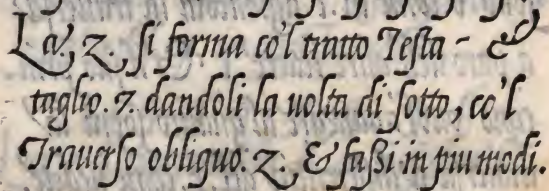 La. z. si forma co'l tratto Testa - &
taglio. 7. dandoli la uolta di sotto, co'l
Trauerso obliquo. z. & faßi in piu modi.